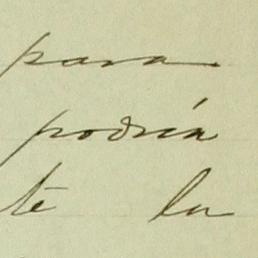 para
podría
te la